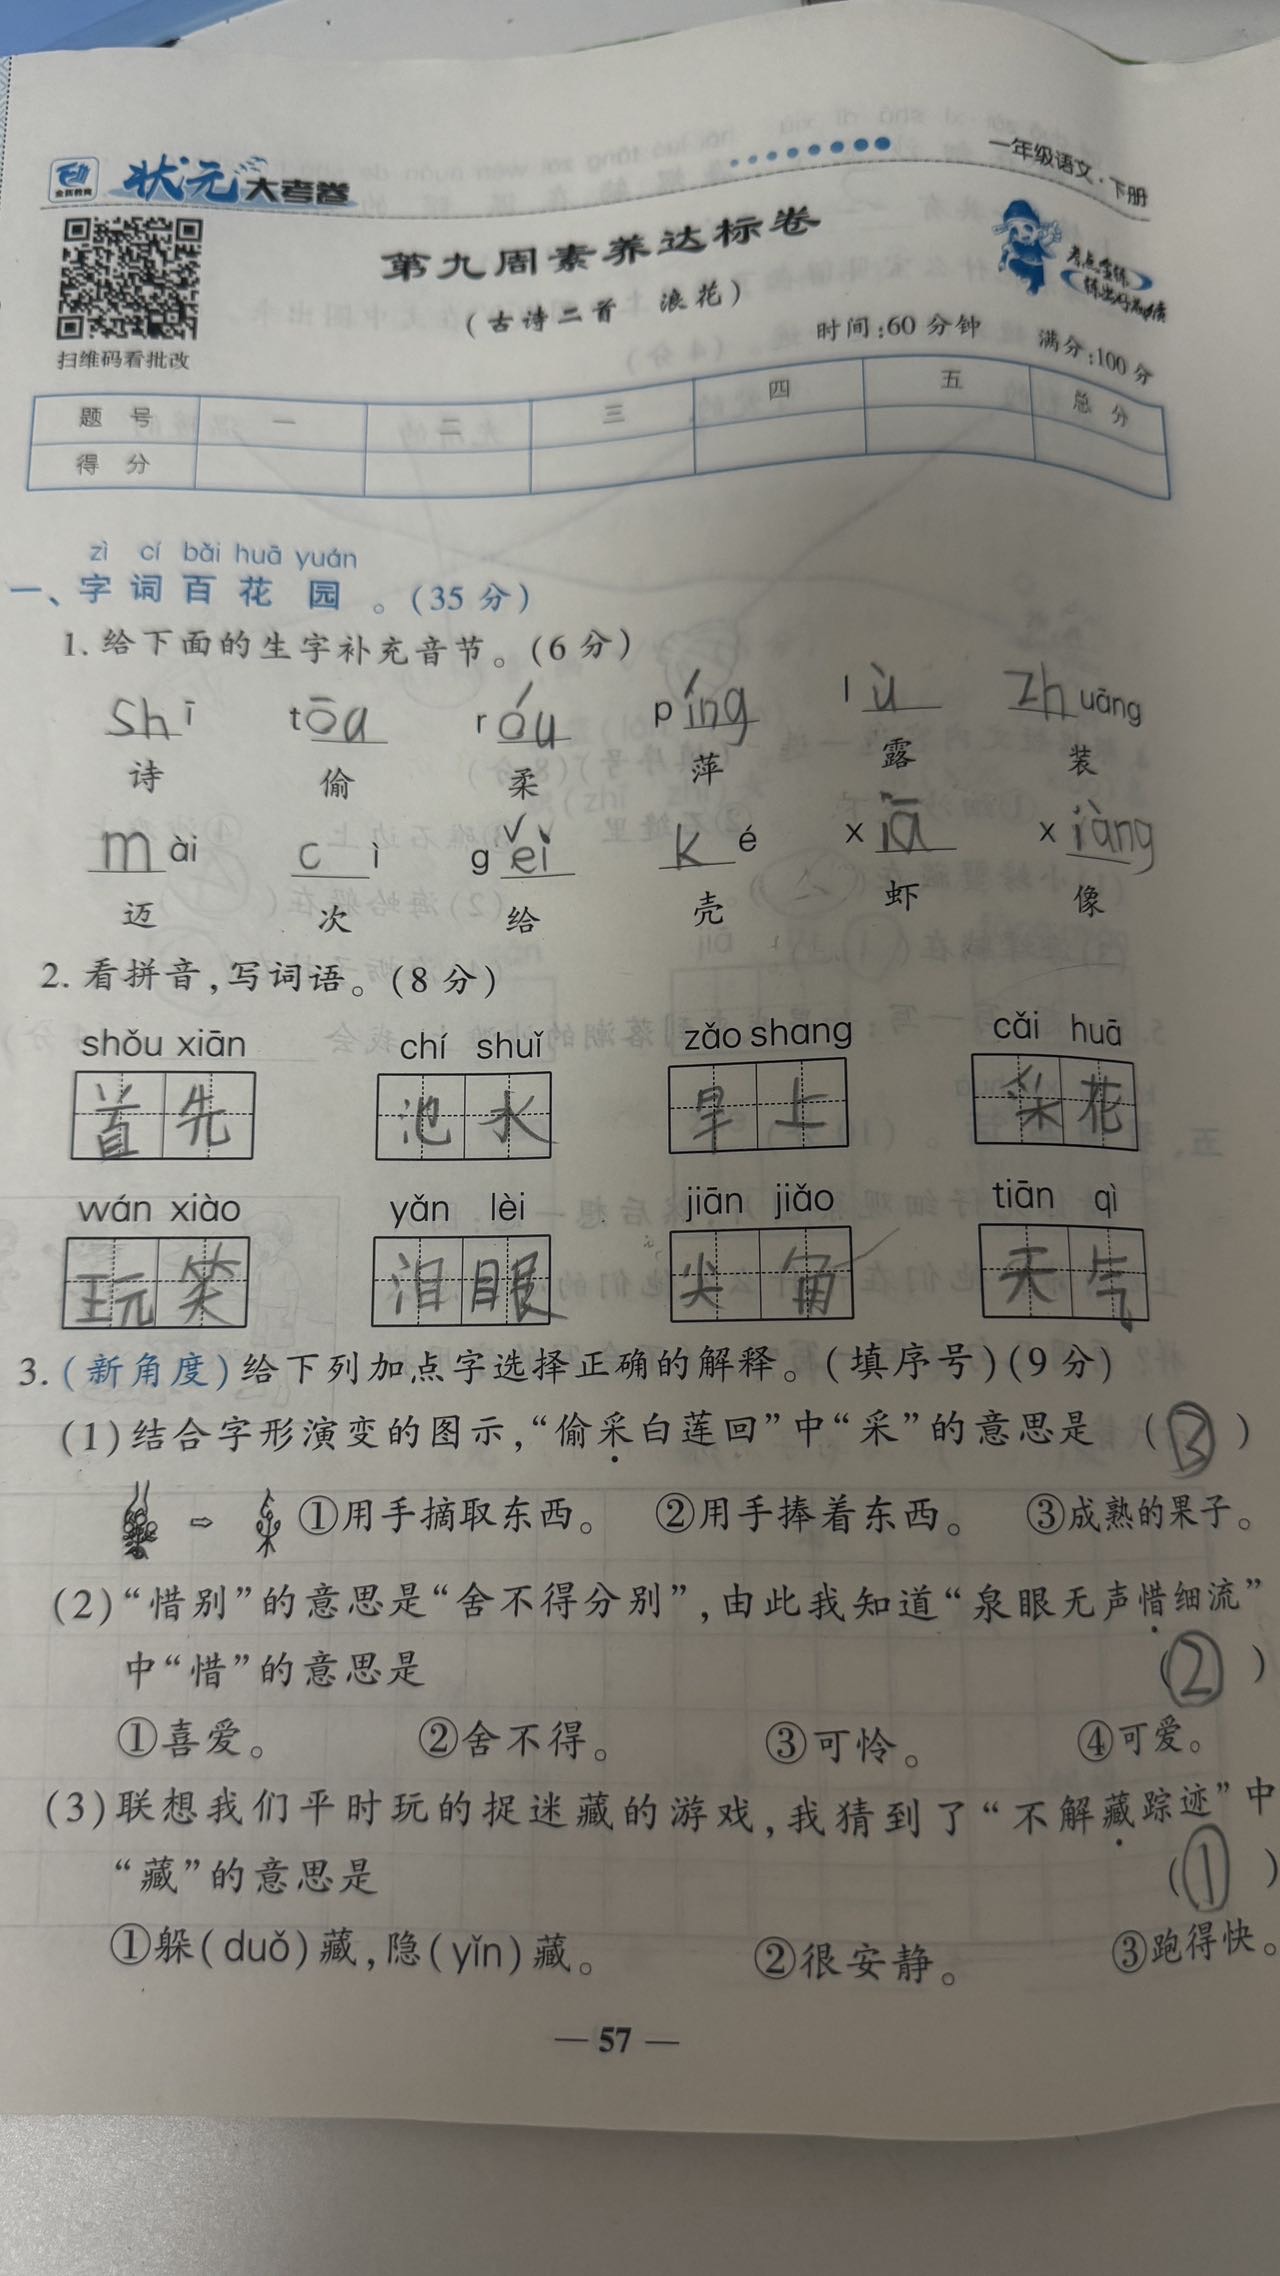 状元大考卷
一年级语文·下册
第九周素养达标卷
(古诗二首 浪花)
扫维码看批改
时间:60分钟 满分:100分
题号 一 二 三 四 五 总分
得分
zì cí bǎi huā yuán
一、字词百花园。(35分)
1.给下面的生字补充音节。(6分)
shī tōu róu píng lù zhuāng
诗 偷 柔 萍 露 装
mài cì gěi ké xiā xiàng
迈 次 给 壳 虾 像
2.看拼音,写词语。(8分)
shǒu xiān chí shuǐ zǎo shang cǎi huā
首先 池水 早上 采花
wán xiào yǎn lèi jiān jiǎo tiān qì
玩笑 泪眼 尖角 天气
3.(新角度)给下列加点字选择正确的解释。(填序号)(9分)
(1)结合字形演变的图示,“偷采白莲回”中“采”的意思是 (③)
⇨ ①用手摘取东西。 ②用手捧着东西。 ③成熟的果子。
(2)“惜别”的意思是“舍不得分别”,由此我知道“泉眼无声惜细流”
中“惜”的意思是 (②)
①喜爱。 ②舍不得。 ③可怜。 ④可爱。
(3)联想我们平时玩的捉迷藏的游戏,我猜到了“不解藏踪迹”中
“藏”的意思是 (①)
①躲(duǒ)藏,隐(yǐn)藏。 ②很安静。 ③跑得快。
— 57 —